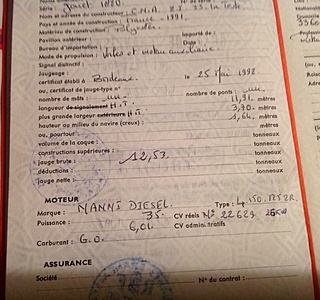 Série :
Nom et adresse du constructeur : C.N.A. 33. La Teste
Pays et année de construction : France - 1991.
Matériau de construction : Polyester.
Pavillon antérieur : Importé de :
Bureau d'importation : Date :
Mode de propulsion : Voiles et moteur auxiliaire.
Signal distinctif :
Jaugeage :
certificat établi à Bordeaux. le 25 Mai 1998
ou, certificat de jauge-type n°
nombre de mâts : un. nombre de ponts : un.
longueur de signalement H.T. 11,91. mètres
plus grande largeur extérieure H.T. 3,90. mètres
hauteur au milieu du navire (creux) : 1,64. mètres
ou, pourtour : mètres
volume de la coque : tonneaux
constructions supérieures : tonneaux
jauge brute : 12,53. tonneaux
déductions : tonneaux
jauge nette : tonneaux
MOTEUR
Marque : NANNI DIESEL. Type : 4.150.
Puissance : 35. CV réels N° 22629
6,01. CV administratifs
Carburant : G.O.
ASSURANCE
Société N° du contrat :